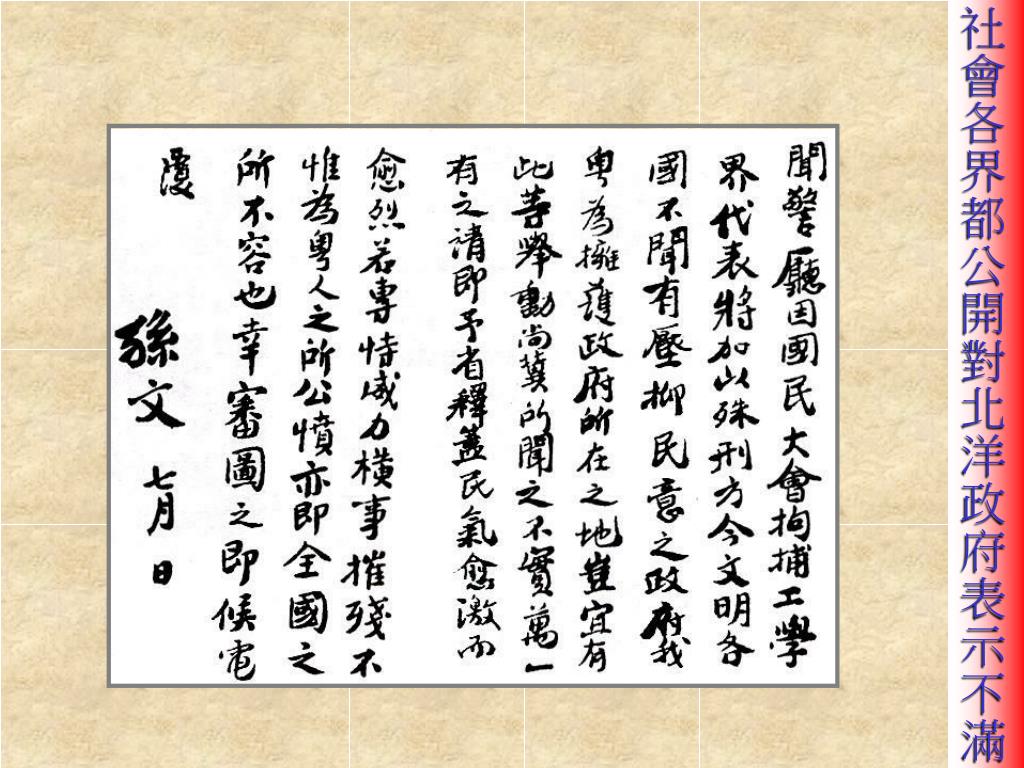 社會各界都公開對北洋政府表示不滿
聞警廳因國民大會拘捕工學
界代表將加以殊刑方今文明各
國不聞有壓抑民意之政府我
粵為擁護政府所在之地豈宜有
此等舉動尚冀所聞之不實萬一
有之請即予省釋蓋民氣愈激而
愈烈若專恃威力橫事摧殘不
惟為粵人之所公憤亦即全國之
所不容也幸審圖之即候電
覆
孫文 七月 日